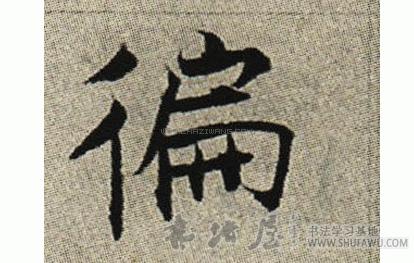 徧
WWW.CHAZIWANG.COM
書法屋 书法学习基地
WWW.SHUFAWU.COM